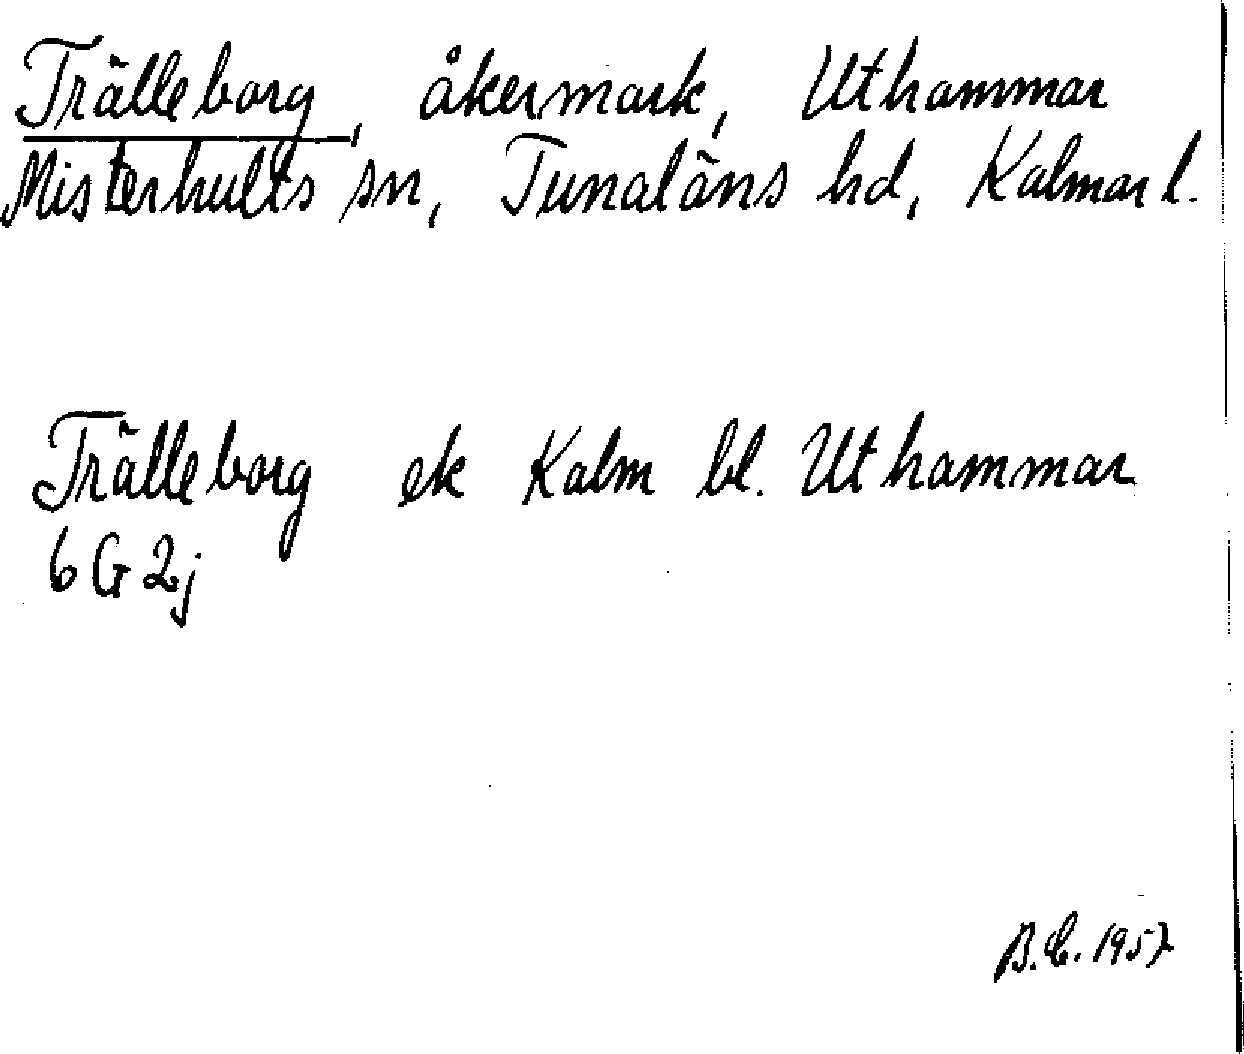 Trälleborg, åkermark, Uthammar
Misterhults sn, Tunaläns hd, Kalmar l.
Trälleborg ek Kalm bl. Uthammar
6G2j
B.E. 1957